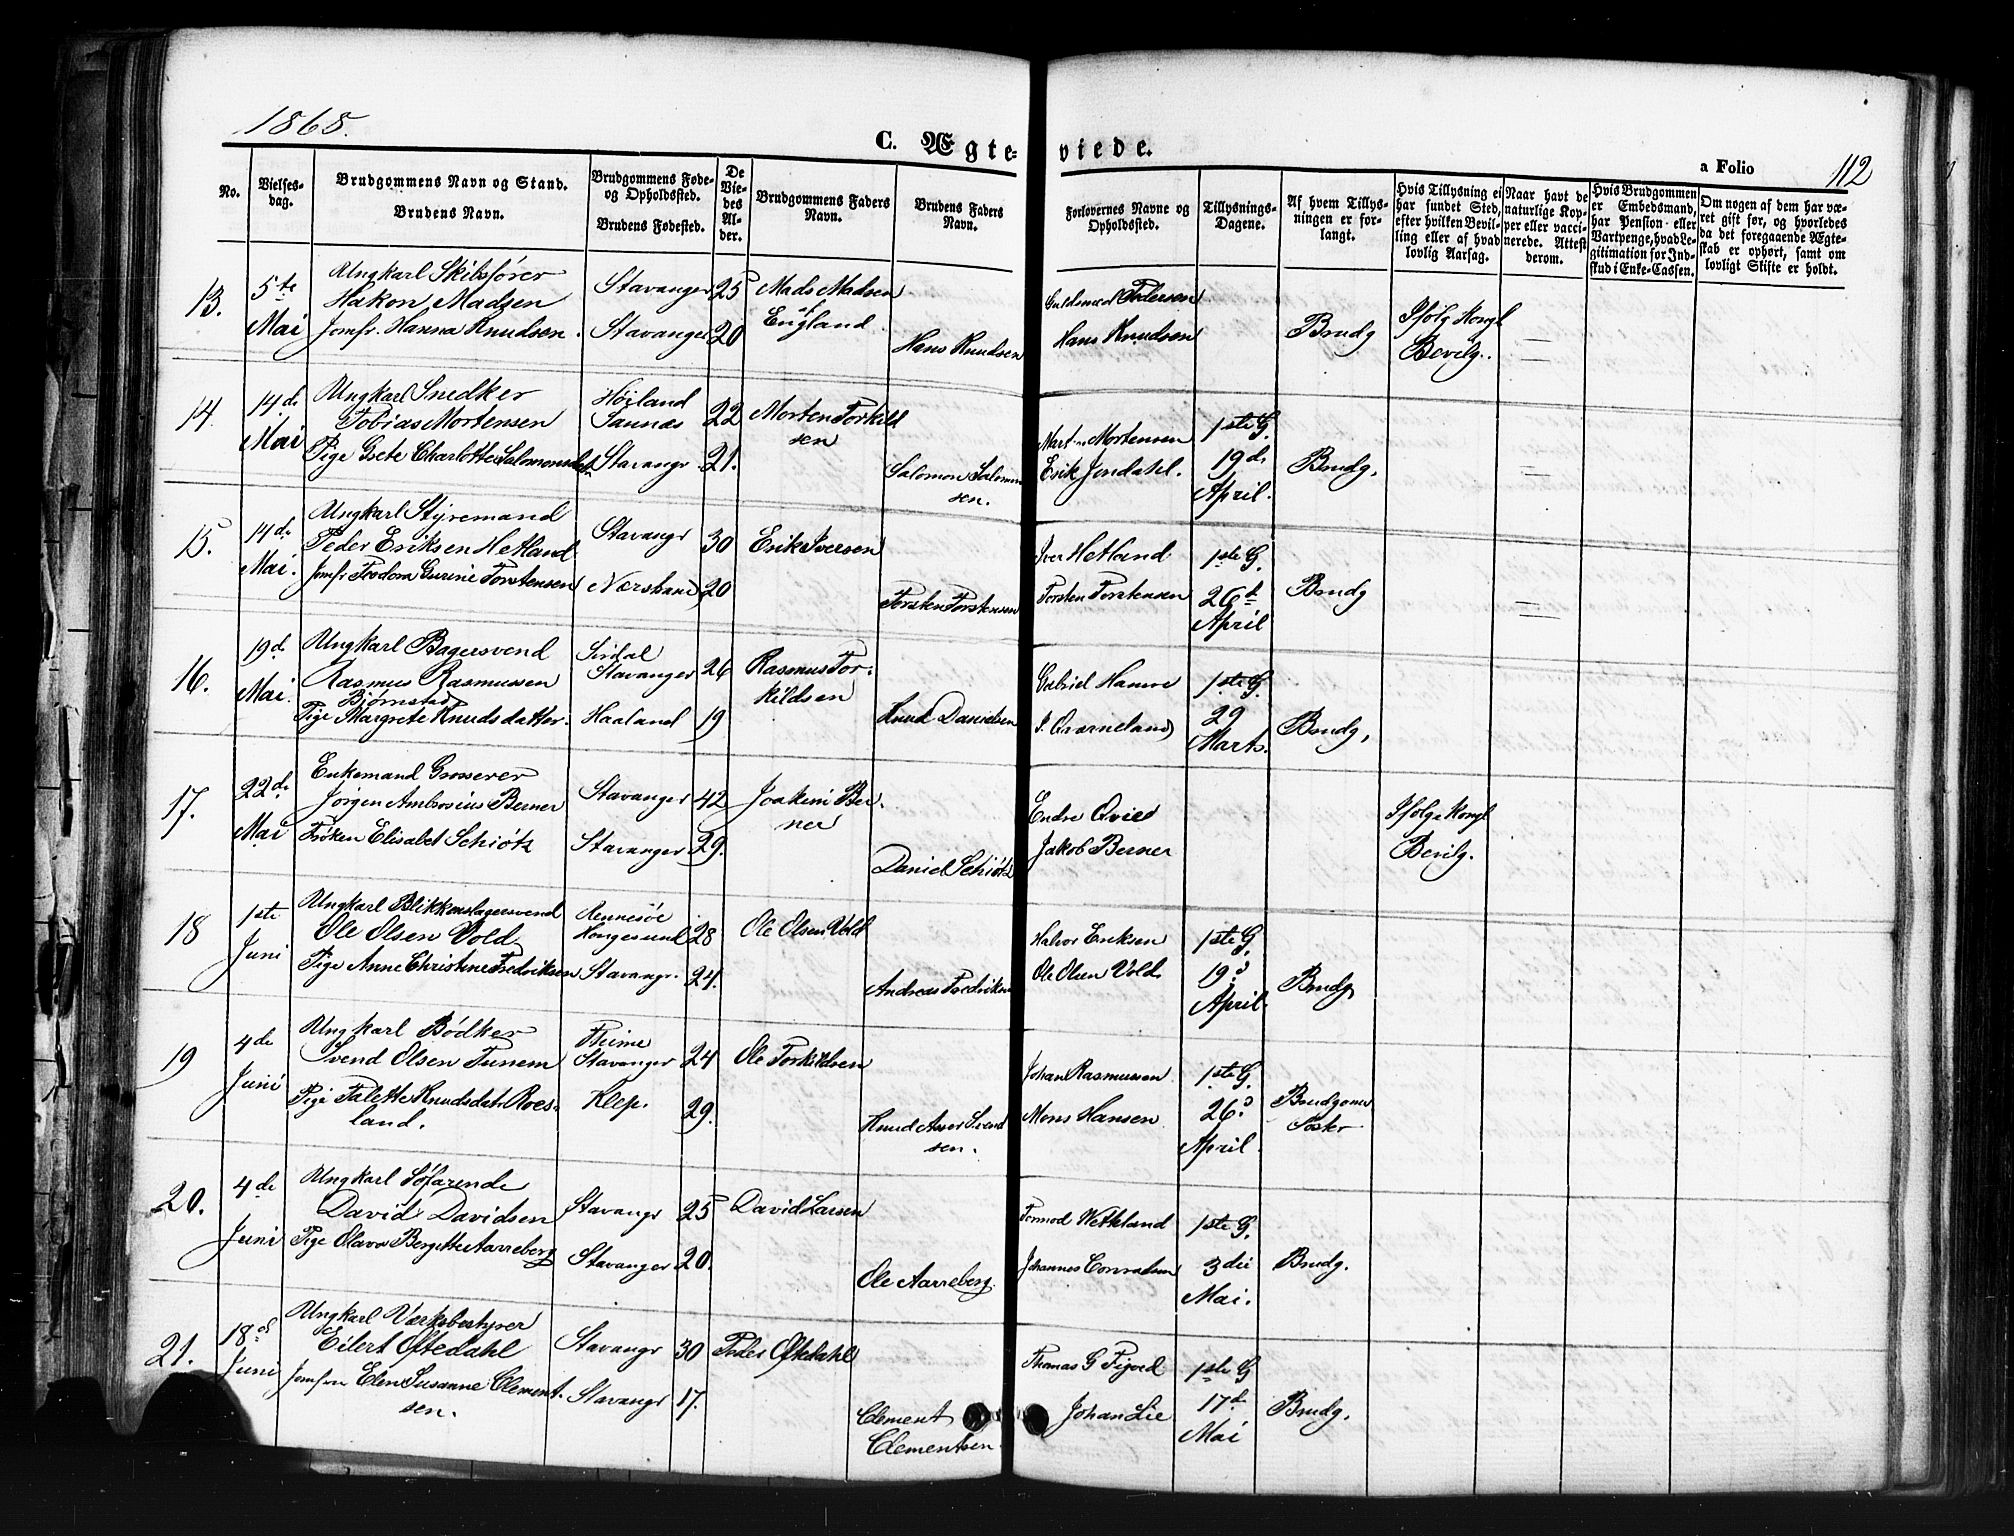 1868.
C. Ægteviede.
a Folio 112
No.
Vielses-
dag.
Brudgommens Navn og Stand.
Brudens Navn.
Brudgommens Føde-
og Opholdssted.
Brudens Fødested.
De
Vie-
des
Al-
der.
Brudgommens Faders
Navn.
Brudens Faders
Navn.
Forlovernes Navne og
Opholdssted.
Tillysnings-
Dagene.
Af hvem Tillys-
ningen er for-
langt.
Hvis Tillysning ei
har fundet Sted,
efter hvilken Bevil-
ling eller af hvad
lovlig Aarsag.
Naar havt de
naturlige Kop-
per eller vacci-
nerede. Attest
derom.
Hvis Brudgommen
er Embedsmand,
har Pension- eller
Vartpenge, hvad Le-
gitimation for Ind-
skud i Enke-Cassen.
Om nogen af dem har væ-
ret gift før, og hvorledes
da det foregaaende Ægte-
skab er ophørt, samt om
lovligt Skifte er holdt.
13.
5te
Mai
Ungkarl Skibsfører
Hakon Madsen
Jomfr. Hanna Knudsen.
Stavanger 25
Stavanger 20
Mads Madsen
England
Hans Knudsen
Guldsmed Pedersen
Hans Knudsen
Brudg
Ifølg Kongl
Bevilg.
14.
14de
Mai
Ungkarl Snedker
Tobias Mortensen
Pige Grete Charlotte Salomonsdatr
Høiland
Saunæs 22
Stavangr 21.
Morten Torkild
sen
Salomon Salomon
sen.
Martin Mortensen
Erik Jendahl.
1ste G.
19de
April.
Brudg,
15.
14de
Mai.
Ungkarl Styremand
Peder Eriksen Hetland
Jomfr Teodora Gurine Torstensen
Stavangr 30
Nærstrand 20
Erik Iversen
Torsten Torstensen
Iver Hetland
Torsten Torstensen
1ste G.
26t
April
Brudg
16.
19de
Mai.
Ungkarl Bagersvend
Rasmus Rasmussen
Bjørnstad
Pige Margrete Knudsdatter.
Sirdal
Stavanger 26
Haaland 19
Rasmus Tor-
kildsen
Knud Danielsen
Gabriel Hanve
S. Qværneland
1ste G.
29
Marts.
Brudg,
17.
22de
Mai
Enkemand Grosserer
Jørgen Ambrosius Berner
Frøken Elisabet Schiötz
Stavanger 42
Stavanger 29.
Joakim Ber
ner
Daniel Schiötz
Endre Qvie
Jakob Berner
Ifølge Kongl
Bevilg.
18
1ste
Juni
Ungkarl Blikkenslagersvend
Ole Olsen Vold
Pige Anne Christine Fredriksen
Rennesøe
Hougesund 28
Stavangr. 24.
Ole Olsen Vold
Andreas Fredriksen
Halvor Eriksen
Ole Olsen Vold
1ste G.
19d
April
Brudg
19
4de
Juni
Ungkarl Bödker
Svend Olsen Tunem
Pige Talette Knudsdatr Roes-
land.
Thime
Stavanger 24
Klep. 29.
Ole Torkildsen
Knud Aver Svend
sen.
Johan Rasmussen
Mons Hansen
1ste G.
26d
April.
Brudgomens
Søster
20.
4de
Juni
Ungkarl Söfarende
David Davidsen
Pige Olava Bergitte Aarreberg
Stavangr 25
Stavanger 20.
David Larsen
Ole Aarreberg.
Tormod Wetteland
Johannes Conradsen
1ste G.
3die
Mai.
Brudg.
21.
18d
Juni
Ungkarl Værksbestyrer
Eilert Oftedahl
Jomfru Elen Susanne Clement.
sen.
Stavangr 30
Stavangr 17.
Peder Oftedahl
Clement
Clementsen.
Thomas G Figved
Johan Lie
1ste G
17d
Mai
Brudg.